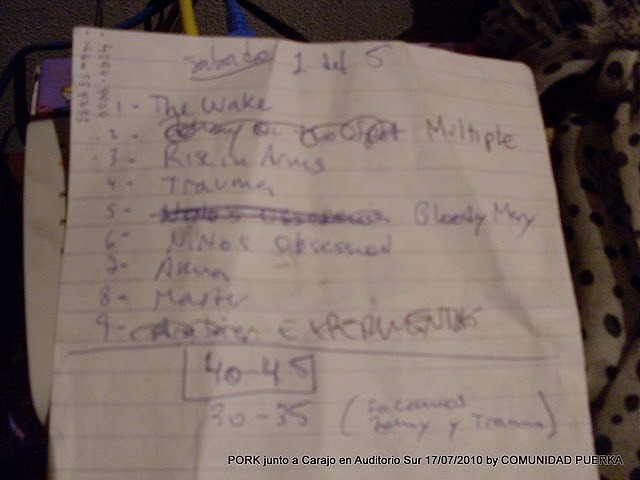 Sabado 1 del 5
1- The Wake
2- Multiple
3- Rise in Arms
4- Trauma
5- Bloody Mary
6- Nino's Obsession
7-
8- Master
9- EXPERIMENTAR
40-45
30-35 (Sacamos
Johny y Trauma)
PORK junto a Carajo en Auditorio Sur 17/07/2010 by COMUNIDAD PUERKA